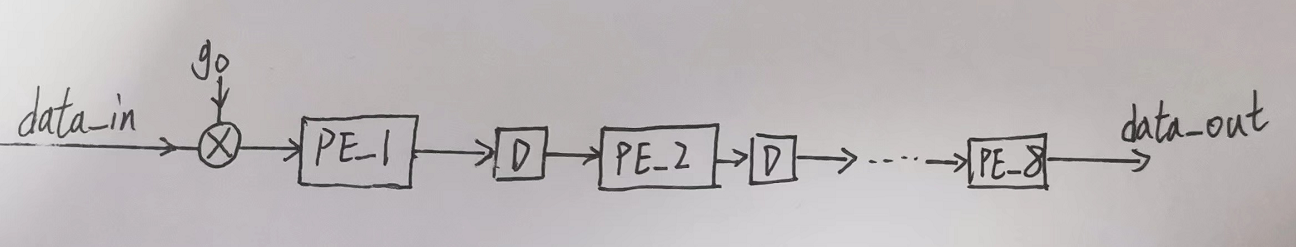 g0
data_in
PE_1
D
PE_2
D
PE_8
data_out